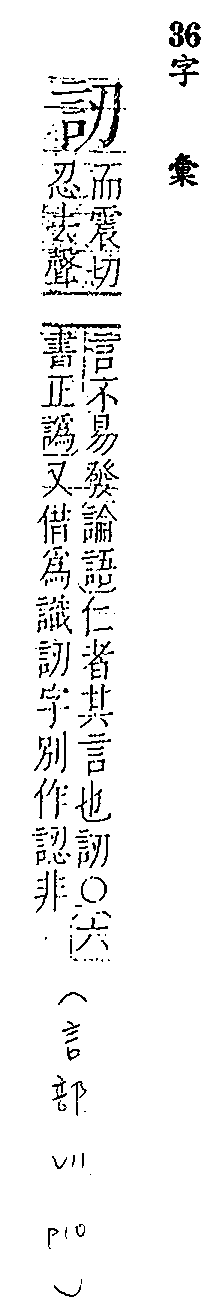 36字彙
訒
而震切
忍去聲
言不易發論語仁者其言也訒○六
書正譌又借爲識訒字別作認非
(言部 VII P10)